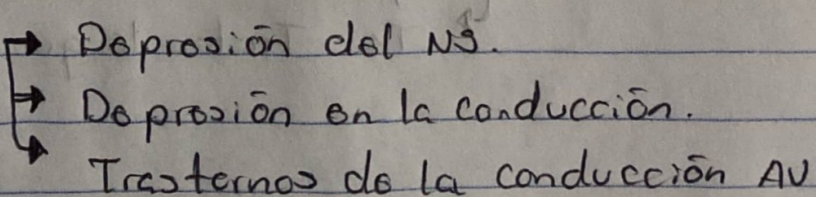 Depresión del NS.
Depresión en la conducción.
Trastornos de la conducción AV